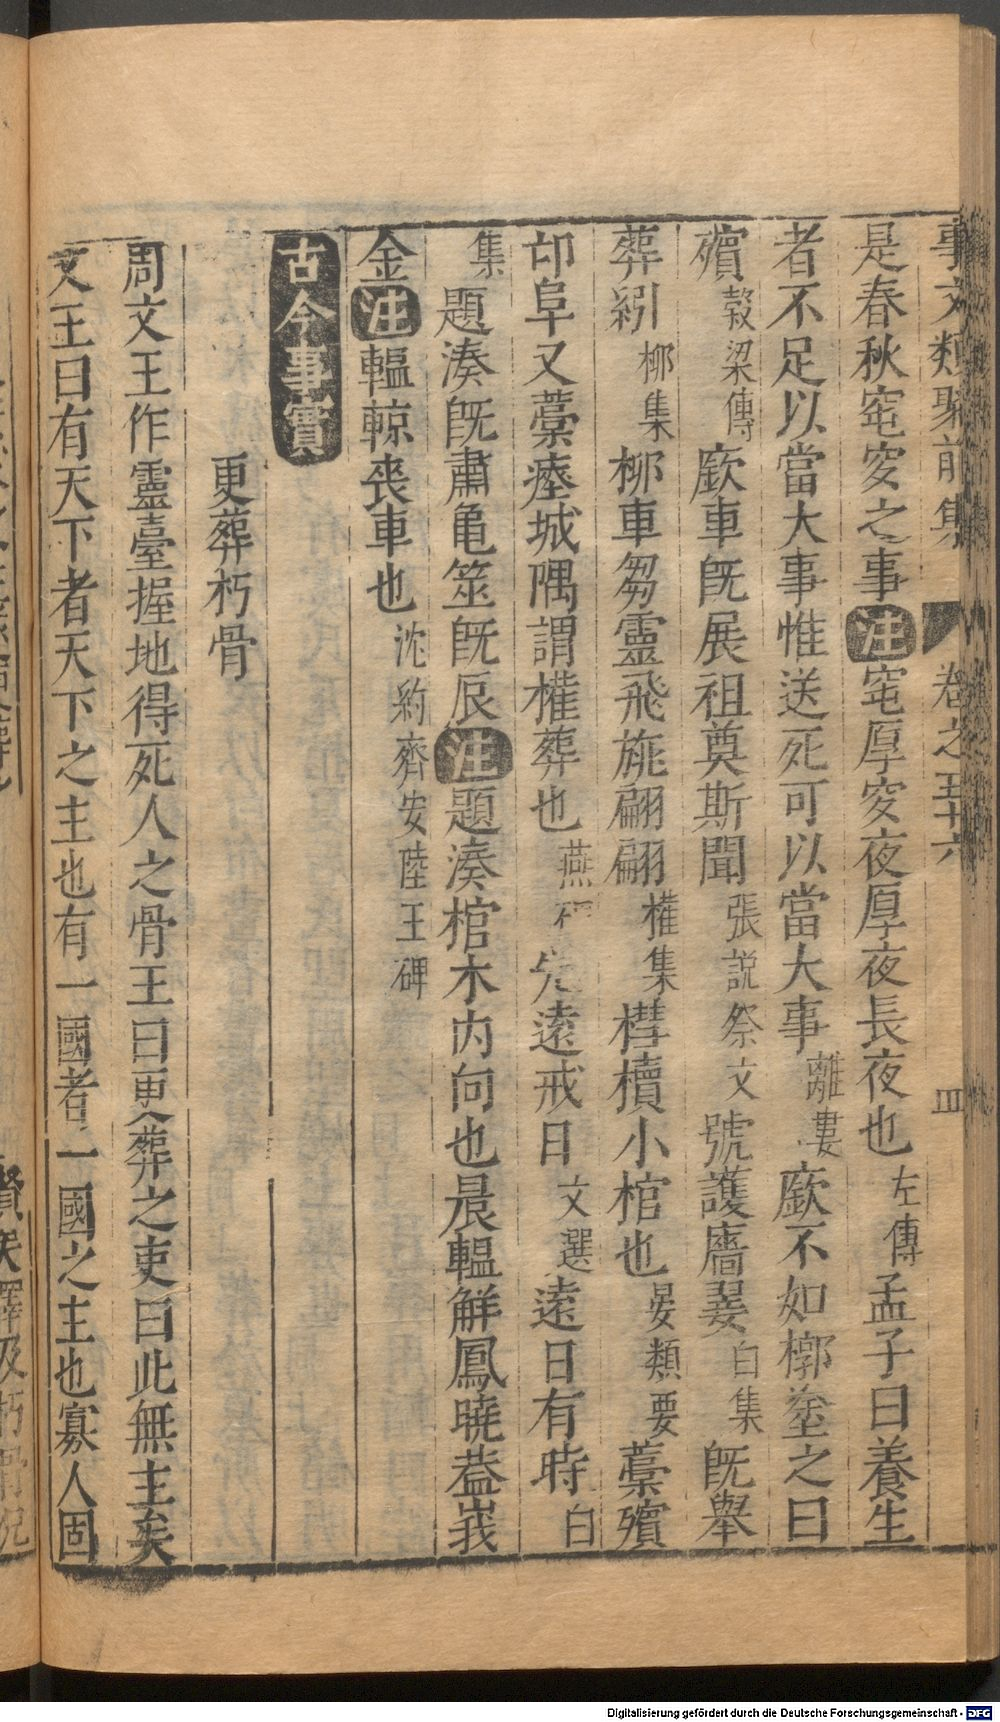 事文類聚前集 卷之五十六 四
是春秋窀穸之事注窀厚穸夜厚夜長夜也左傳孟子曰養生
者不足以當大事惟送死可以當大事離婁廞不如槨塗之曰
殯穀梁傳廞車旣展祖奠斯聞張説祭文號護廧翣白集旣舉
葬紖柳集柳車芻靈飛旐翩翩權集槥櫝小棺也晏類要藁殯
卭阜又藁瘞城隅謂權葬也燕 遠戒日文選遠日有時白
集題湊旣肅亀筮旣辰注題湊棺木内向也晨轀鮮鳳曉葢峩
金注轀輬喪車也沈約齊安陸王碑
古今事實
更葬朽骨
周文王作靈臺握地得死人之骨王曰更葬之吏曰此無主矣
文王曰有天下者天下之主也有一國者一國之主也寡人固
賢矣澤及朽骨况
Digitalisierung gefördert durch die Deutsche Forschungsgemeinschaft - DFG